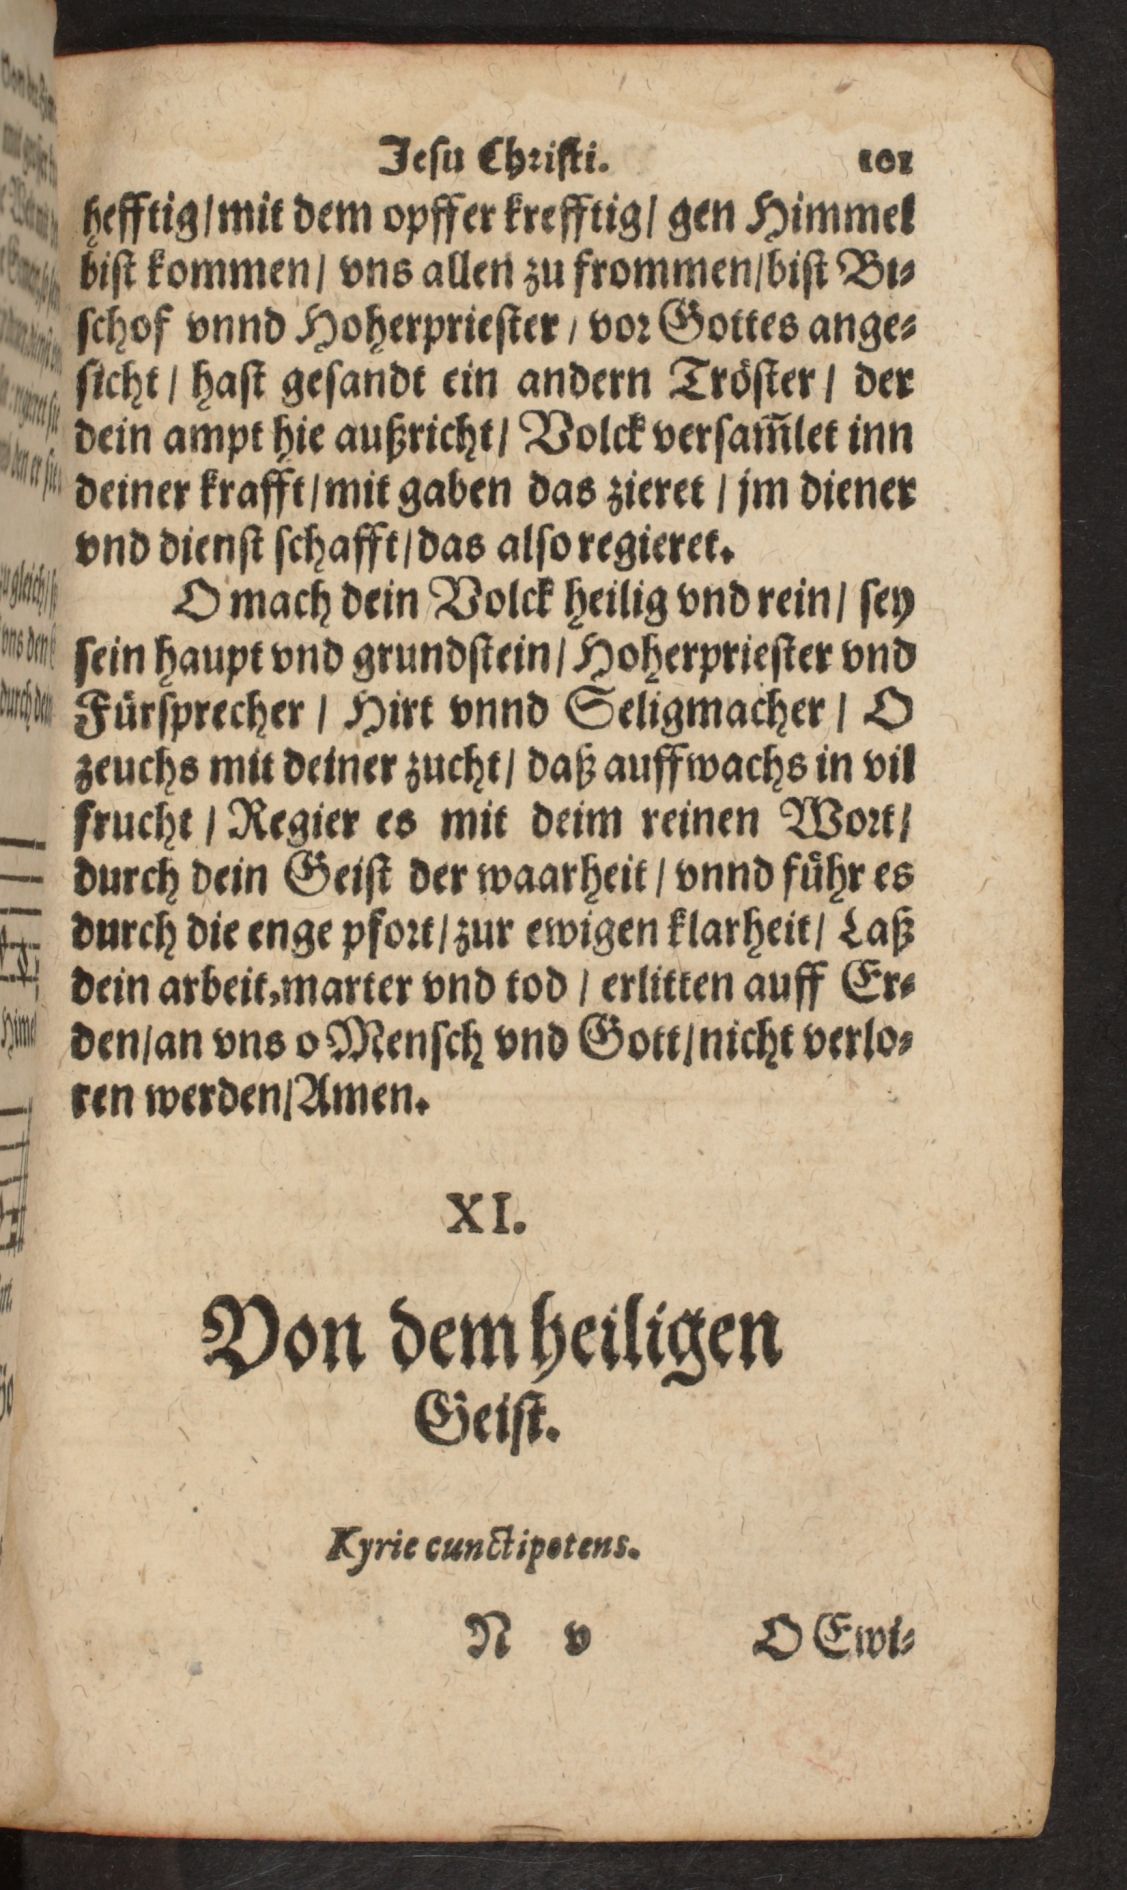 Jesu Christi. 101
hefftig/mit dem opffer krefftig/ gen Himmel
bist kommen/ vns allen zu frommen/bist Bi-
schof vnnd Hoherpriester/ vor Gottes ange-
sicht/ hast gesandt ein andern Tröster/ der
dein ampt hie außricht/ Volck versam̃let inn
deiner krafft/mit gaben das zieret/ jm diener
vnd dienst schafft/das also regieret.
O mach dein Volck heilig vnd rein/ sey
sein haupt vnd grundstein/ Hoherpriester vnd
Fürsprecher/ Hirt vnnd Seligmacher/ O
zeuchs mit deiner zucht/ daß auffwachs in vil
frucht/ Regier es mit deim reinen Wort/
durch dein Geist der waarheit/ vnnd führ es
durch die enge pfort/zur ewigen klarheit/ Laß
dein arbeit, marter vnd tod/ erlitten auff Er-
den/an vns o Mensch vnd Gott/nicht verlo-
ren werden/Amen.
XI.
Von dem heiligen
Geist.
Kyrie cunctipotens.
N v O Ewi-